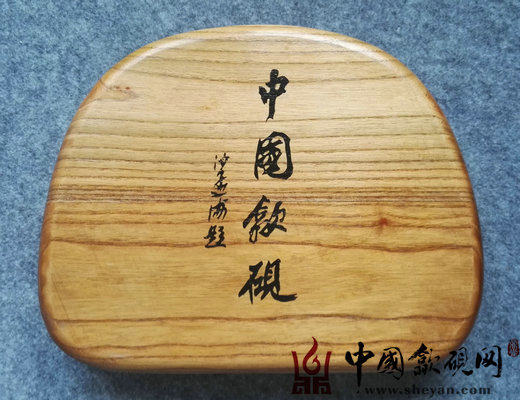 中國歙硯
沙孟海題
中國歙硯网
www.sheyan.com